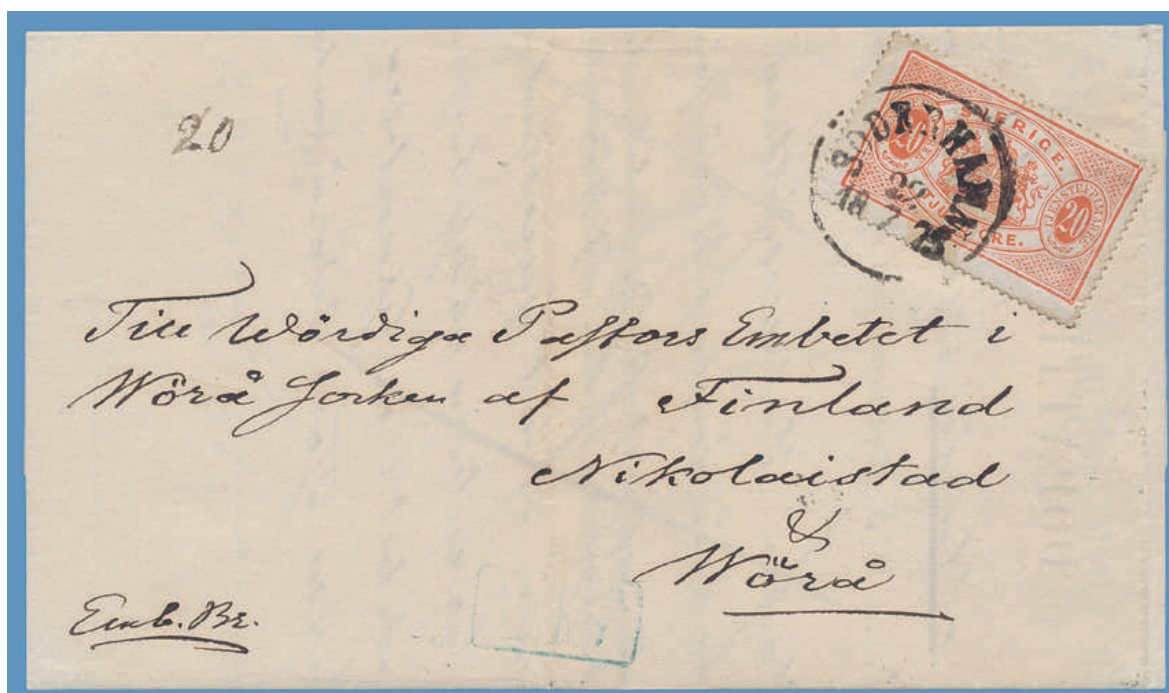 20
SVERIGE.
20 20
TJENSTEFRIMÄRKE
ÖRE.
SÖDERHAMN
22
7
Till Wördiga Pastors Embetet i
Wörå Socken af Finland
Nikolaistad
&
Wörå
Emb. Br.